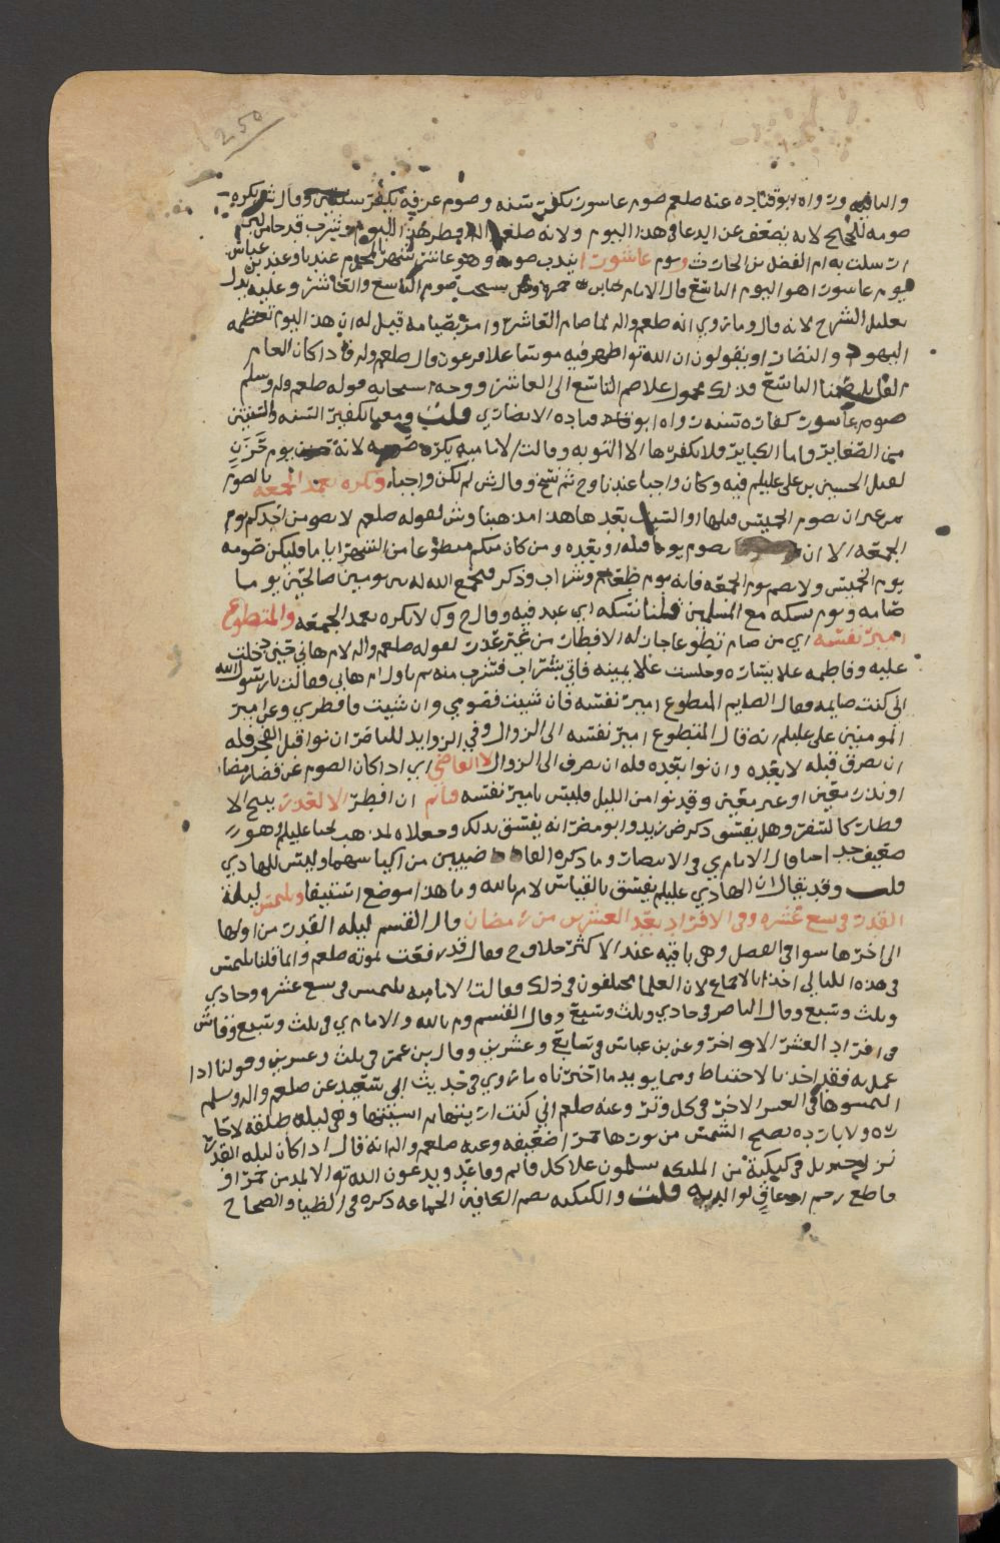 250
صوم عاسورى يكفر سنه وصوم عرفه يكفر سنتين وقال ش يكره
صومه للحاج لانه يضعف عن الدعا في هذا اليوم ولانه صلعم افطر هذا اليوم وشرب قدحا من لبن
ارسلت به ام الفضل بن الحارث وصوم عاشورا يندب صومه وهو عاشر شهر المحرم عندنا وعند بن عباس
يوم عاسورا هو اليوم التاسع قال الامام يستحب صوم التاسع والعاشر وعليه يدل
تعليل الشرح لانه قال وما روي انه صلعم واله لما صام العاشر وامر بصيامه قيل له ان هذا اليوم تعظمه
اليهود والنصارا ويقولون ان الله تع اظهر فيه موسا علا فرعون قال صلعم واله فاذا كان العام
القابل صمنا التاسع فذلك محمول علا ضم التاسع الى العاشر ووجه استحبابه قوله صلعم واله وسلم
صوم عاسورا كفارة سنة رواه ابو قتاده الانصاري قلت ومعنا تكفير السنه والسنتين
من الصغاير فاما الكباير فلا يكفرها الا التوبه وقالت الاماميه يكره صومه لانه يوم حزن
لقتل الحسين بن علي عليلم فيه وكان واجبا عندنا وح ثم نسخ وقال ش لم يكن واجبا وتكره تعمد الجمعه بالصوم
من غير ان يصوم الخميس قبلها او السبت بعدها هذا مذهبنا وش لقوله صلعم لا يصومن احدكم يوم
الجمعه الا ان يصوم يوما قبله او بعده ومن كان منكم متطوعا من الشهر اياما فليكن صومه
يوم الخميس ولا يصم يوم الجمعه فانه يوم طعام وشراب وذكر فيجمع الله له بين يومين صالحين يوما
صامه ويوم نسكه مع المسلمين قلنا نسكه اي عيد فيه وقال ح وك لا يكره تعمد الجمعه والمتطوع
امير نفسه اي من صام تطوعا جاز له الافطار من غير عذر لقوله صلعم واله لام هاني حين دخلت
عليه وفاطمه علا يساره وجلست علا يمينه فاتي بشراب فشرب منه ثم ناول ام هاني فقالت يا رسول الله
اني كنت صايمه فقال الصايم المتطوع امير نفسه فان شيت فصومي وان شيت فافطري وعن امير
المومنين علي عليلم انه قال المتطوع امير نفسه الى الزوال وفي الزوايد للناصر ان نوا قبل الفجر فله
ان يصرف قبله لا بعده وان نوا بعده فله ان يصرف الى الزوال لا القاضي اي اذا كان الصوم عن قضا رمضان
او نذر معين او غير معين وقد نوا من الليل فليس بامير نفسه فاثم ان افطر الا لعذر يبيح الا
فطار كالسفر وهل يفسق ذكر ض زيد وابو مضر انه يفسق بذلك وجعلاه لمذهب يحيا عليلم وهو
ضعيف جدا قال الامام ي في الانتصار وما ذكره القا ضيين من اكياسهما وليس للهادي
قلت وقد يقال ان الهادي عليلم يفسق بالقياس لا م بالله وما هذا موضع استيفا وتلتمس ليلة
القدر في تسع عشره وفي الافراد بعد العشرين من رمضان قال القسم ليله القدر من اولها
الى اخرها سوا في الفضل وهي باقيه عند الاكثر خلاف ح فقال قد رفعت لموته صلعم وانما قلنا تلتمس
في هذه الليالي اخذا بالاجماع لان العلما مختلفون في ذلك فقالت الاماميه تلتمس في تسع عشره وحادي
وثلث وتسع وقال الناصر في حادي وثلث وسبع وقال القسم وم بالله والامام ي في ثلث وسبع وقال ش
في افراد العشر الاواخر وعن بن عباس في سابع وعشرين وقال بن عمر في ثلث وعشرين وقولنا اذا
عمل به فقد اخذ بالاحتياط ومما يويد ما اخترناه ما روي في حديث ابي سعيد عن صلعم واله وسلم
التمسوها في العشر الاخر في كل وتر وعنه صلعم اني كنت اريتها ثم انسيتها وهي ليله طلقه لا حا
ره ولا بارده تصبح الشمس من يومها حمرا ضعيفه وعنه صلعم واله انه قال اذا كان ليله القدر
نزل جبريل في كبكبة من المليكه يسلمون علا كل قايم وقاعد ويدعون الله تع الا لمدمن خمر او
قاطع رحم او عاق لوالديه قلت والكبكبه بضم الكافين الجماعه ذكره في الضيا والصحاح